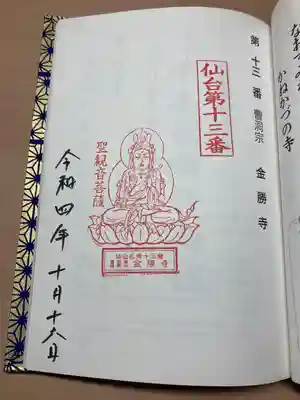 第十三番 曹洞宗 金勝寺
仙台第十三番
聖観音菩薩
金勝寺
令和四年 十月十六日
かねかつの寺